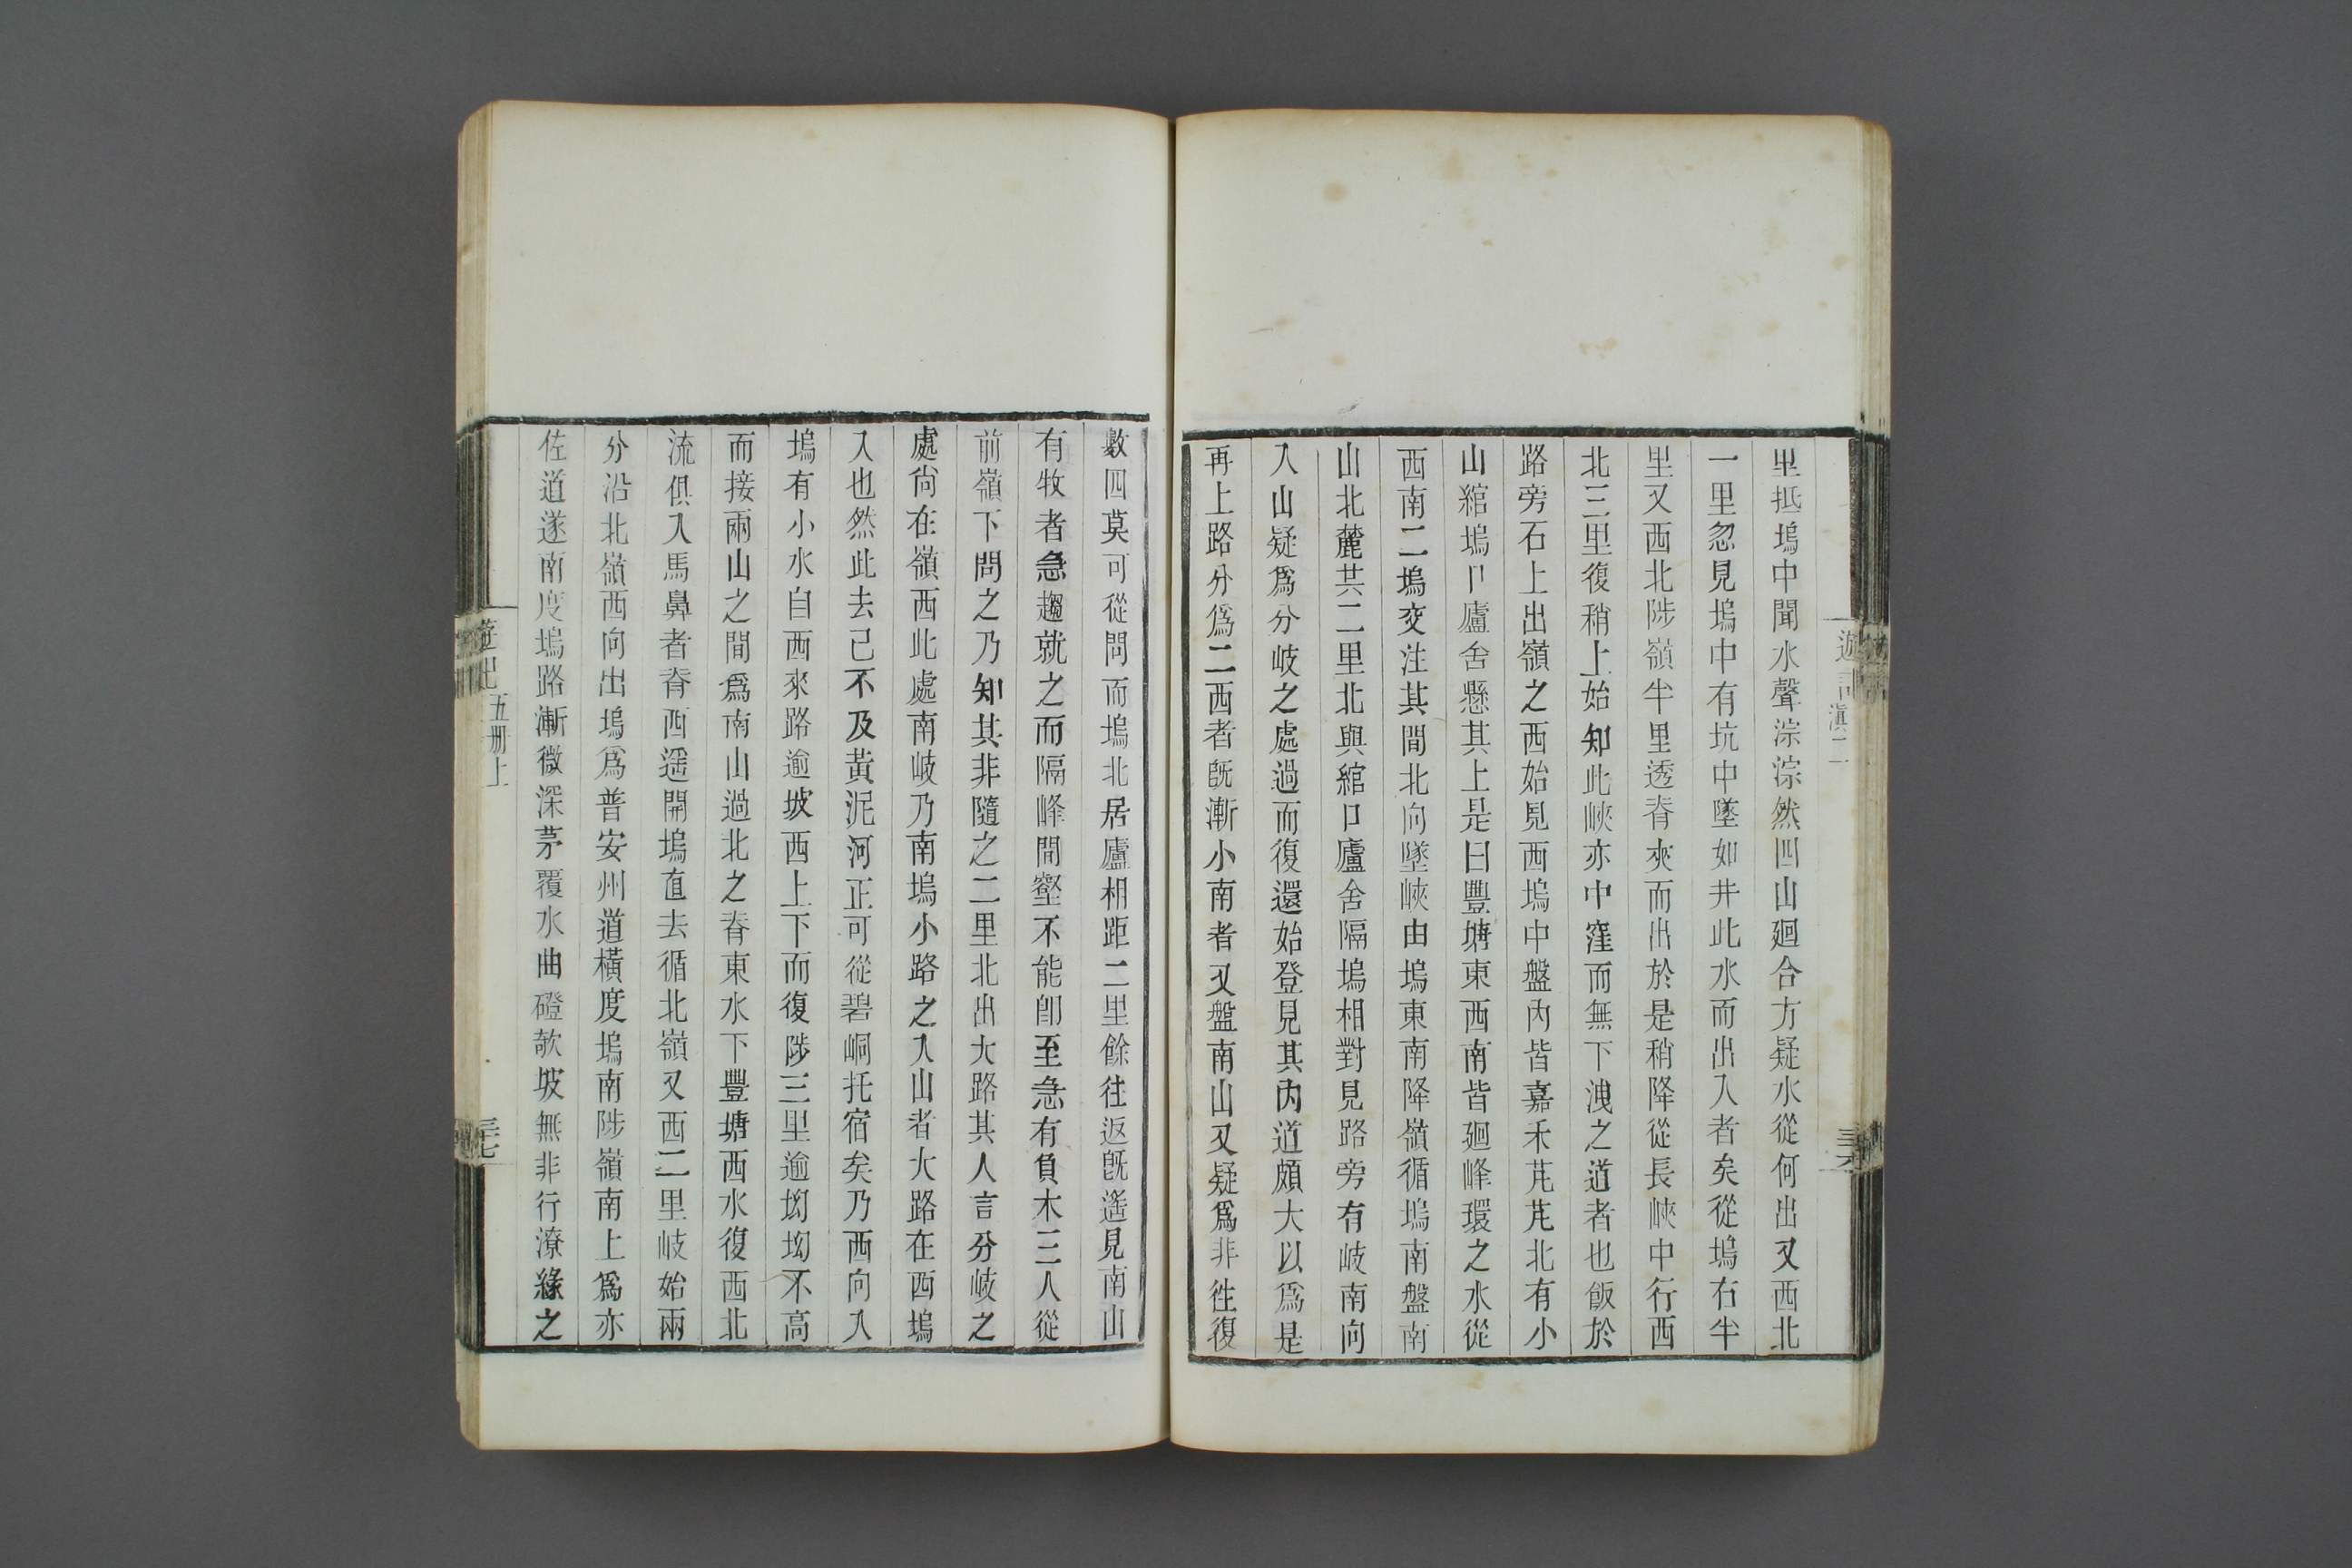 遊記
滇二
三十六
里抵塢中聞水聲淙淙然四山廻合方疑水從何出又西北
一里忽見塢中有坑中墜如井此水而出入者矣從塢右半
里又西北陟嶺半里透脊夾而出於是稍降從長峽中行西
北三里復稍上始知此峽亦中窪而無下洩之道者也飯於
路旁石上出嶺之西始見西塢中盤內皆嘉禾芃芃北有小
山綰塢口廬舍懸其上是曰豐塘東西南皆廻峰環之水從
西南二塢交注其間北向墜峽由塢東南降嶺循塢南盤南
山北麓共二里北與綰口廬舍隔塢相對見路旁有岐南向
入山疑爲分岐之處過而復還始登見其內道頗大以爲是
再上路分爲二西者既漸小南者又盤南山又疑爲非徃復
數四莫可從問而塢北居廬相距二里餘往返旣遙見南山
有牧者急趨就之而隔峰間壑不能卽至急有負木三人從
前嶺下問之乃知其非隨之二里北出大路其人言分岐之
處尙在嶺西此處南岐乃南塢小路之入山者大路在西塢
入也然此去已不及黃泥河正可從碧峒托宿矣乃西向入
塢有小水自西來路逾坡西上下而復陟三里逾坳坳不高
而接兩山之間爲南山過北之脊東水下豐塘西水復西北
流俱入馬鼻者脊西遥開塢直去循北嶺又西二里岐始兩
分沿北嶺西向出塢爲普安州道橫度塢南陟嶺南上爲亦
佐道遂南度塢路漸微深茅覆水曲磴欹坡無非行潦緣之
五册上
三十七